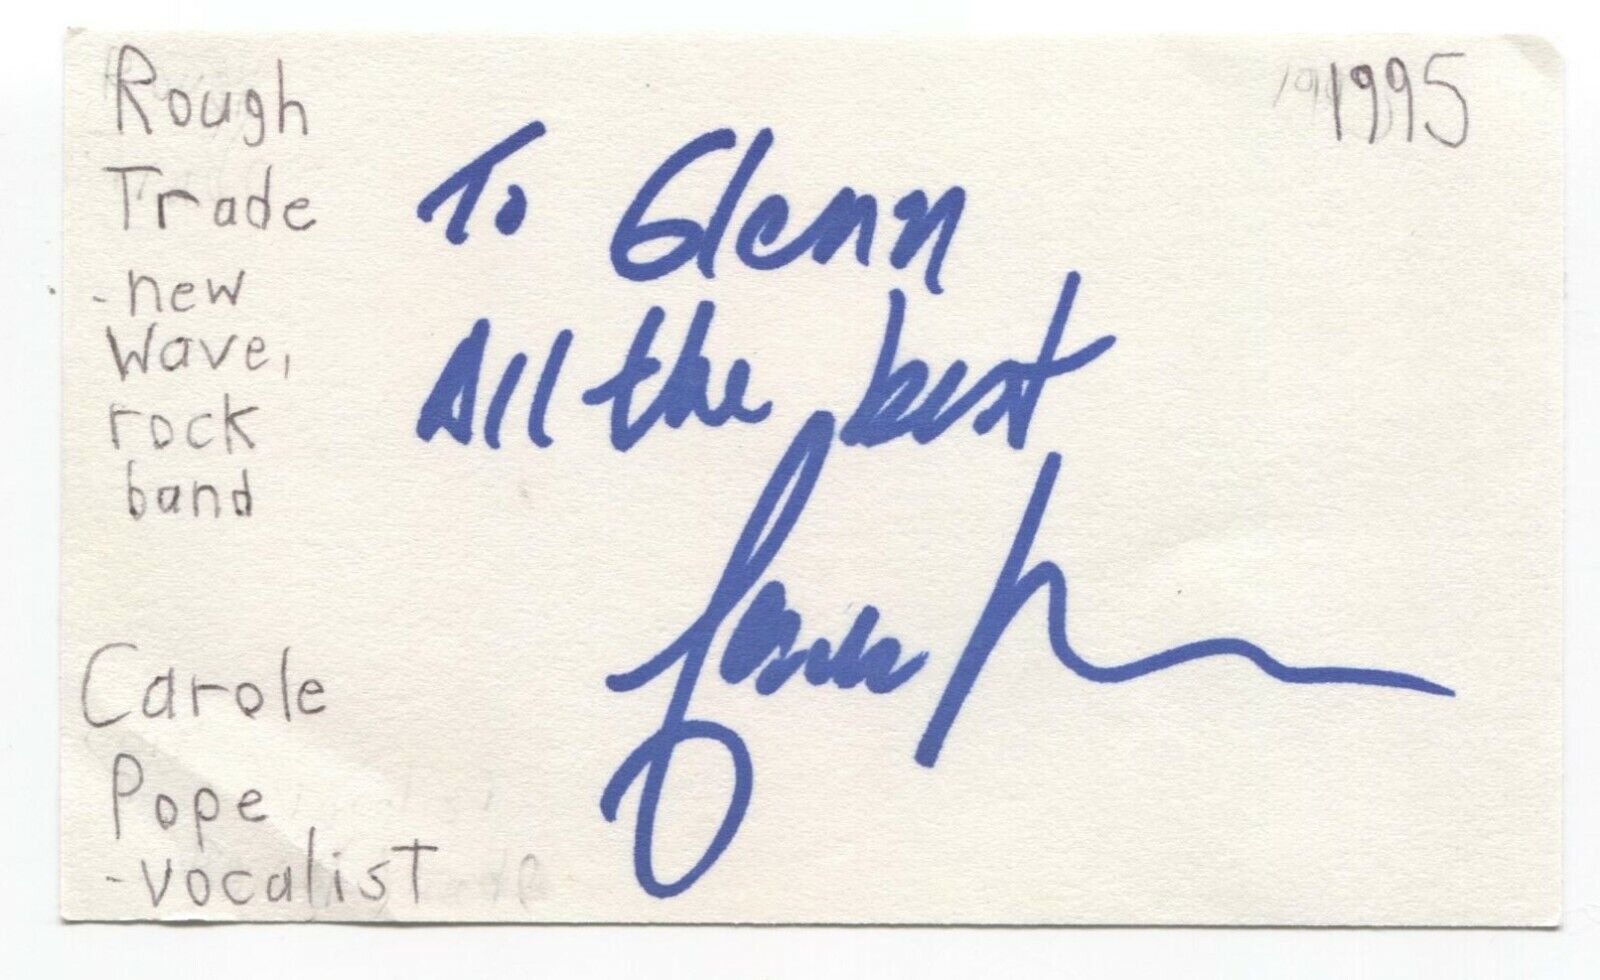 Rough
Trade
-new
Wave,
rock
band
Carole
Pope
-vocalisT
1995
To Glenn
All the best